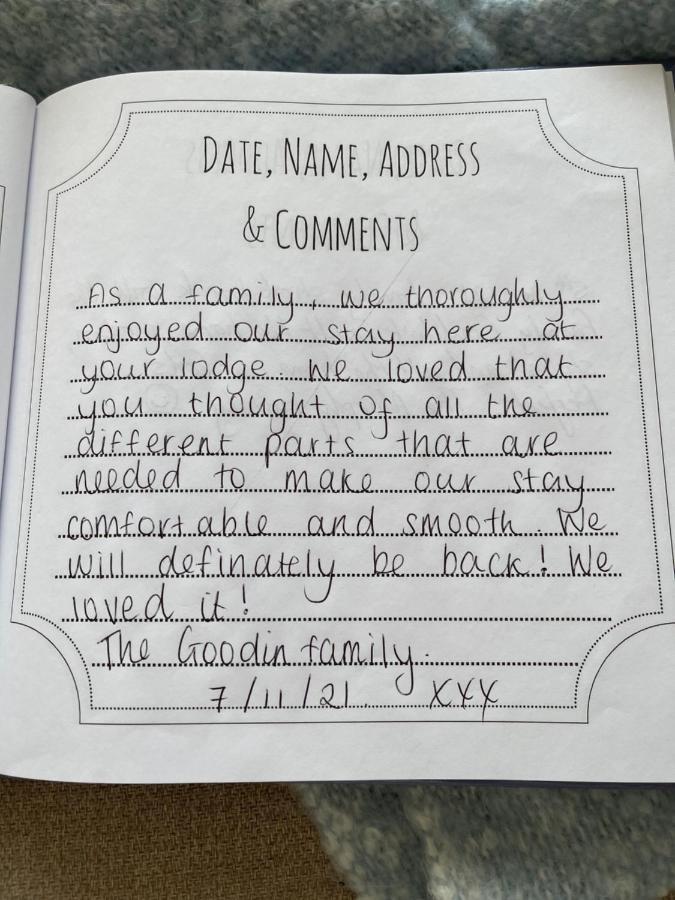 DATE, NAME, ADDRESS
& COMMENTS
As a family, we thoroughly
enjoyed our stay here at
your lodge. We loved that
you thought of all the
different parts that are
needed to make our stay
comfortable and smooth. We
will definately be back! We
loved it!
The Goodin family.
7/11/21. xxx